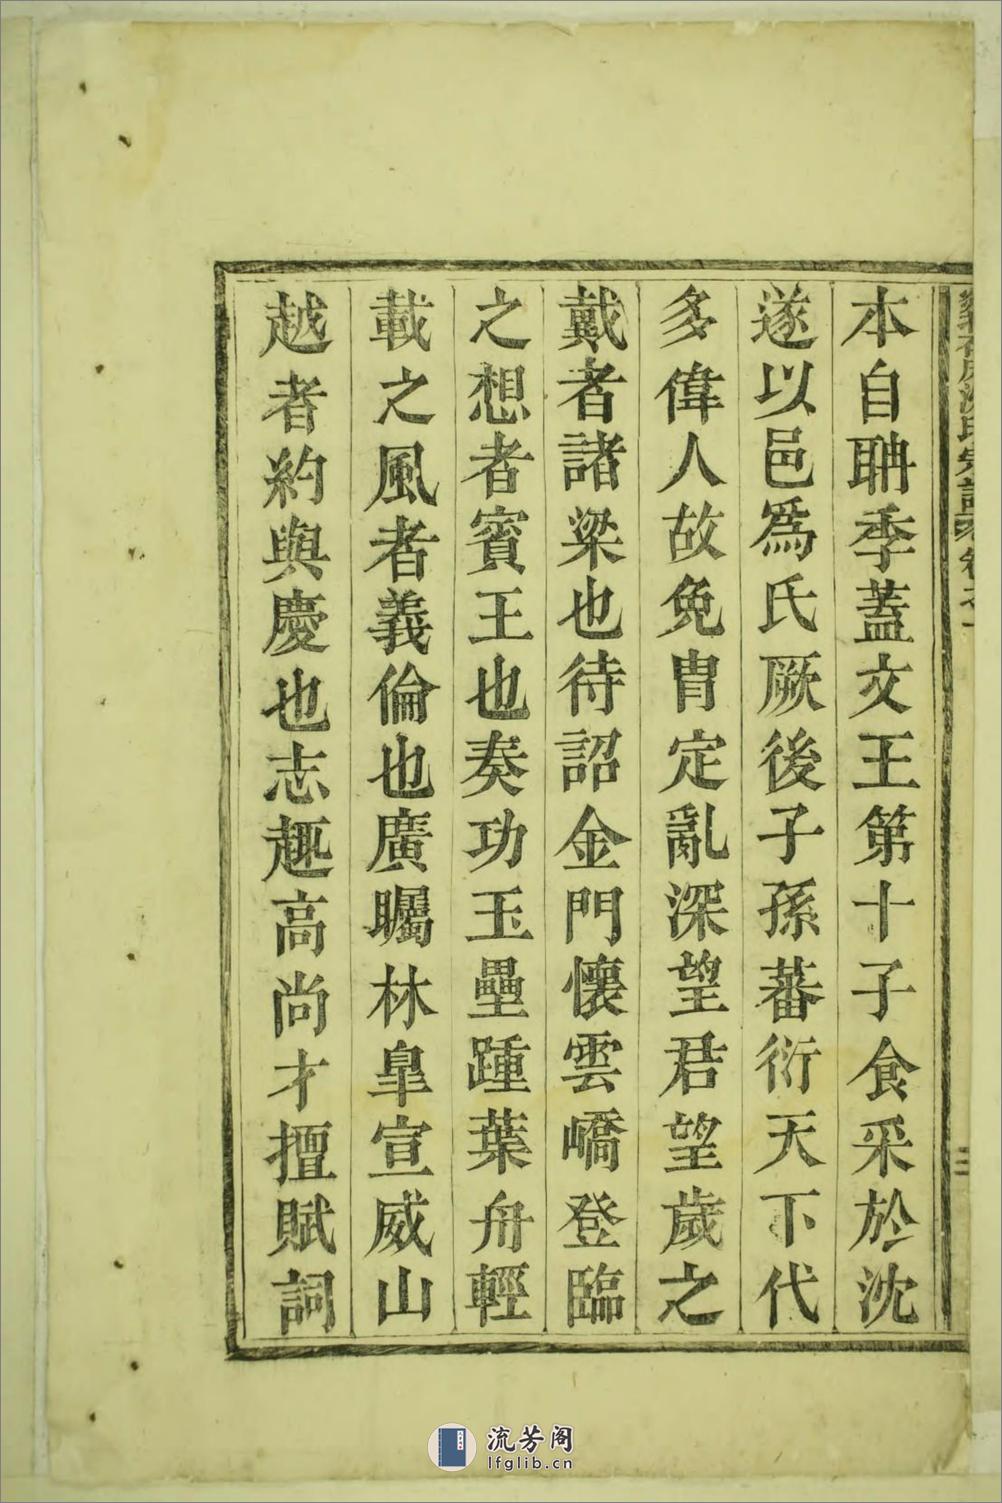 本自聃季蓋文王第十子食采於沈
遂以邑為氏厥後子孫蕃衍天下代
多偉人故免胄定亂深望君望歲之
戴者諸梁也待詔金門懷雲嶠登臨
之想者賓王也奏功玉壘踵葉舟輕
載之風者義倫也廣矚林皐宣威山
越者約與慶也志趣高尚才擅賦詞
三
流芳阁
lfglib.cn